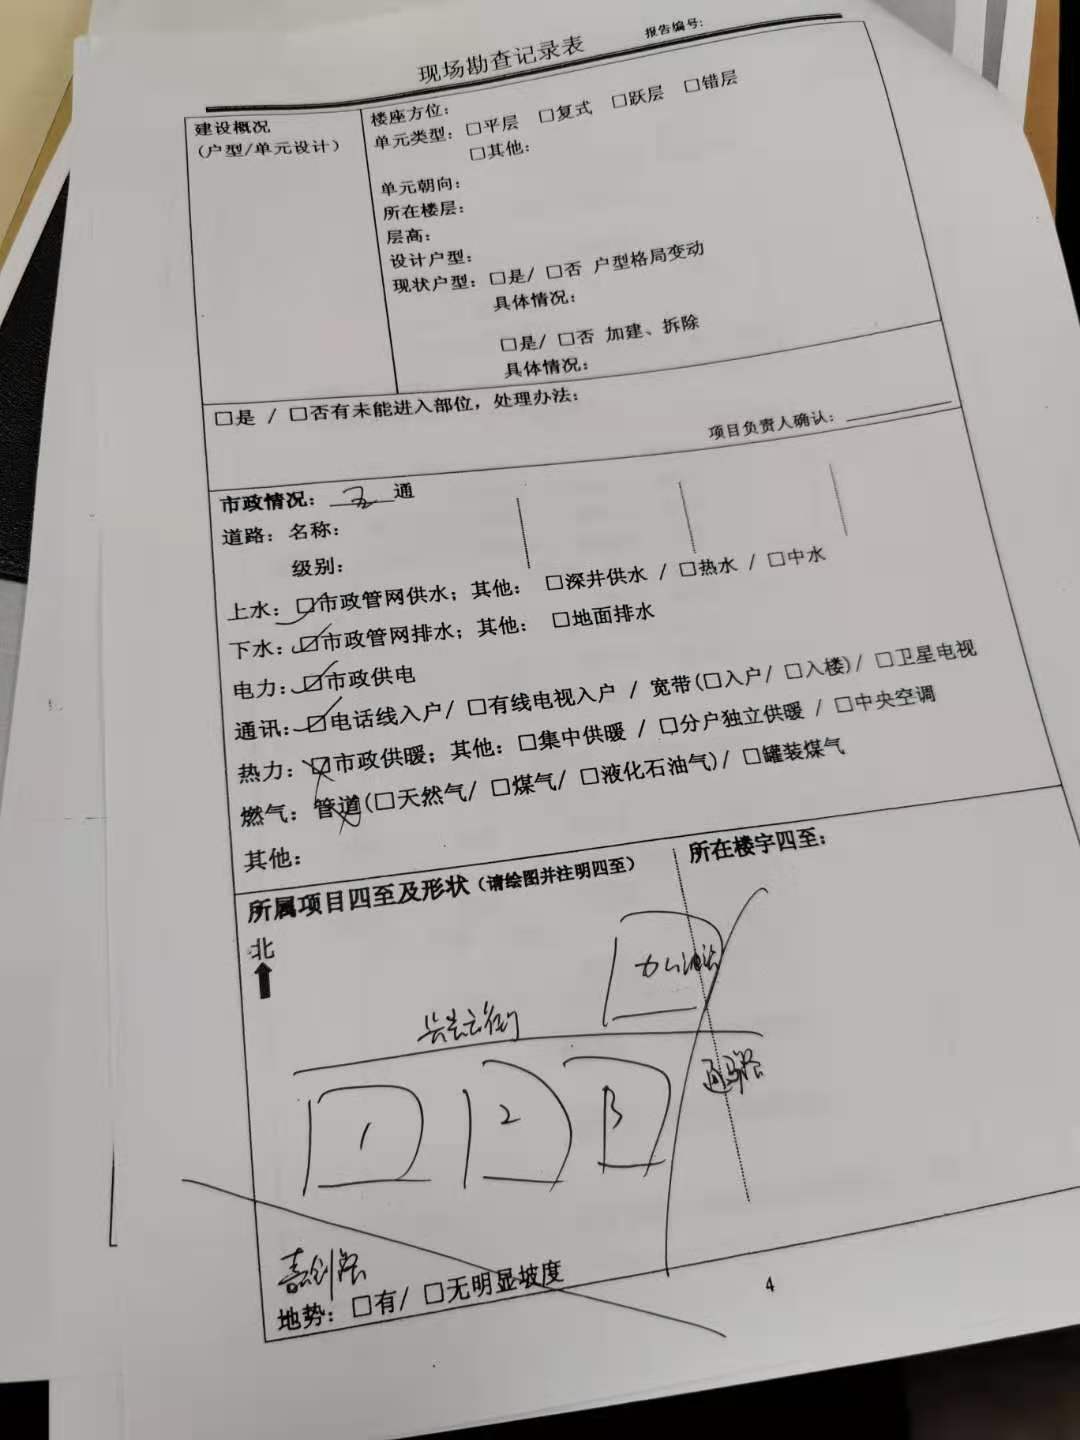 现场勘查记录表
报告编号:
建设概况
(户型/单元设计)
楼座方位:
单元类型: □平层 □复式 □跃层 □错层
□其他:
单元朝向:
所在楼层:
层高:
设计户型:
现状户型: □是/ □否 户型格局变动
具体情况:
□是/ □否 加建、拆除
具体情况:
□是 / □否有未能进入部位, 处理办法:
项目负责人确认:
市政情况: 五 通
道路: 名称:
级别:
上水: ☑市政管网供水; 其他: □深井供水 / □热水 / □中水
下水: ☑市政管网排水; 其他: □地面排水
电力: ☑市政供电
通讯: ☑电话线入户/ □有线电视入户 / 宽带(□入户/ □入楼)/ □卫星电视
热力: □市政供暖; 其他: □集中供暖 / □分户独立供暖 / □中央空调
燃气: 管道(□天然气/ □煤气/ □液化石油气)/ □罐装煤气
其他:
所属项目四至及形状(请绘图并注明四至)
所在楼宇四至:
北
加油站
1
2
3
地势: □有/ □无明显坡度
4